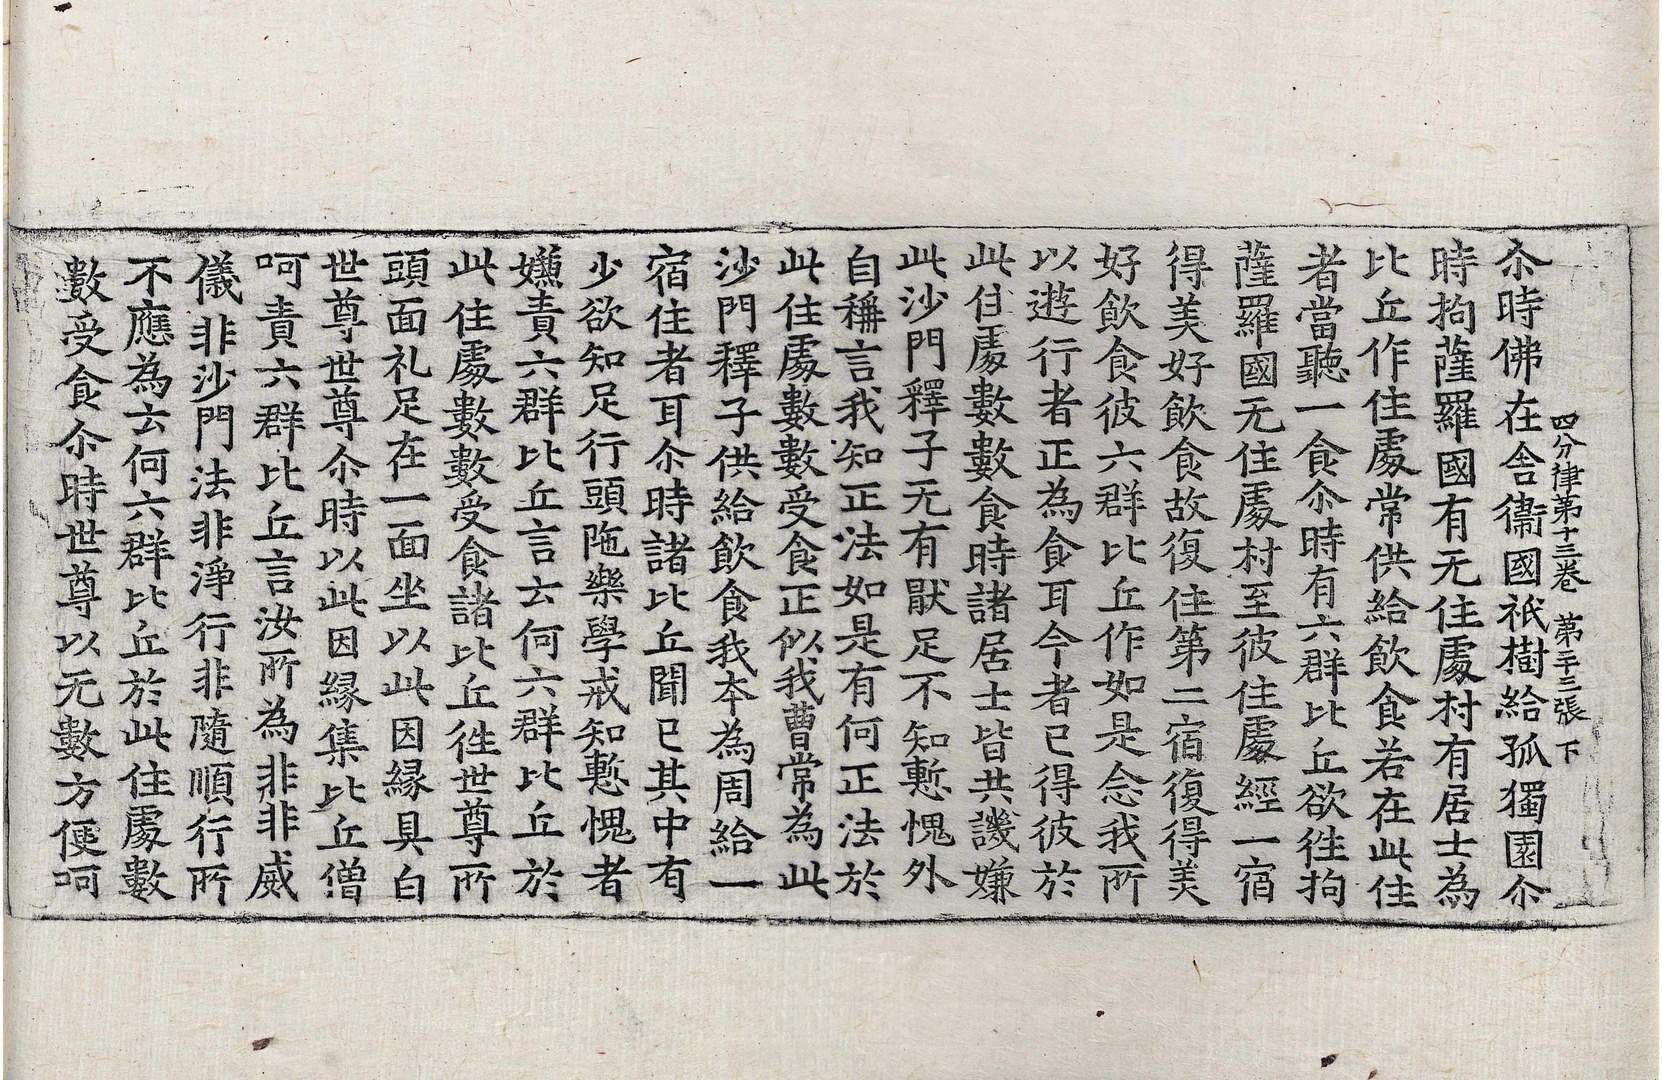 四分律第十三卷 第二十三張 下
尒時佛在舎衞國祇樹給孤獨園尒
時拘薩羅國有无住處村有居士為
比丘作住處常供給飲食若在此住
者當聽一食尒時有六群比丘欲徃拘
薩羅國无住處村至彼住處經一宿
得美好飲食故復住第二宿復得美
好飲食彼六群比丘作如是念我所
以遊行者正為食耳今者已得彼於
此住處數數食時諸居士皆共譏嫌
此沙門釋子无有猒足不知慙愧外
自稱言我知正法如是有何正法於
此住處數數受食正似我曹常為此
沙門釋子供給飲食我本為周給一
宿住者耳尒時諸比丘聞已其中有
少欲知足行頭陁樂學戒知慙愧者
嫌責六群比丘言云何六群比丘於
此住處數數受食諸比丘徃世尊所
頭面礼足在一面坐以此因緣具白
世尊世尊尒時以此因緣集比丘僧
呵責六群比丘言汝所為非非威
儀非沙門法非淨行非隨順行所
不應為云何六群比丘於此住處數
數受食尒時世尊以无數方便呵